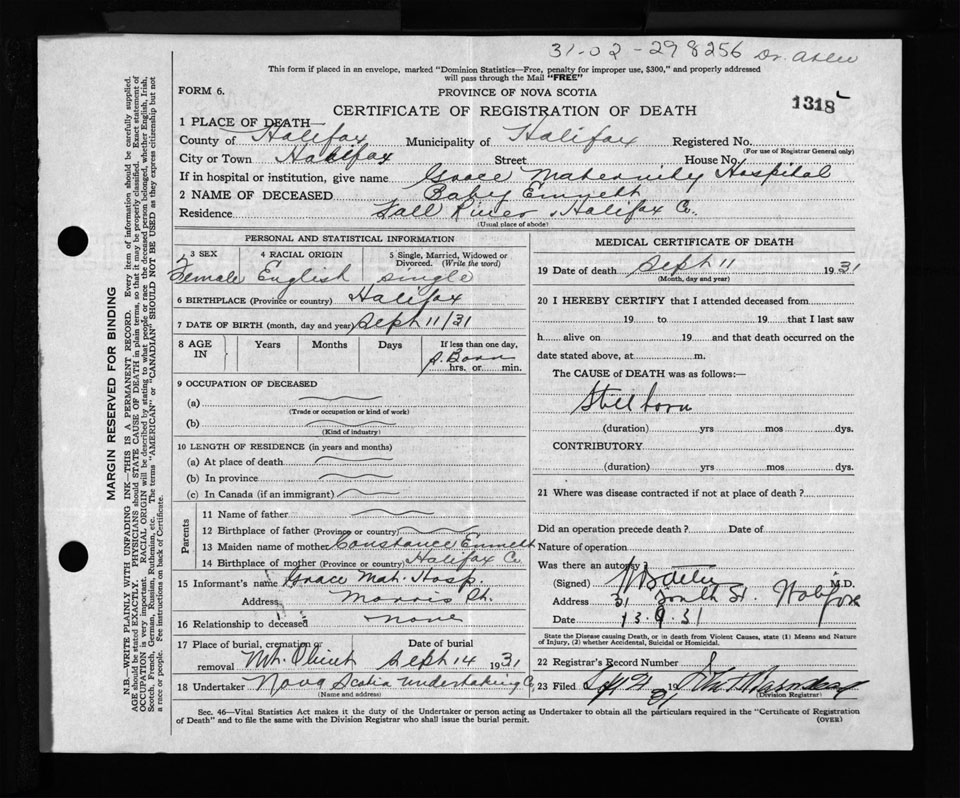 31-02-298256
This form if placed in an envelope, marked "Dominion Statistics—Free, penalty for improper use, $300," and properly addressed
will pass through the Mail "FREE"
FORM 6.
PROVINCE OF NOVA SCOTIA
CERTIFICATE OF REGISTRATION OF DEATH
1318
1 PLACE OF DEATH
County of Halifax Municipality of Halifax Registered No.
(For use of Registrar General only)
City or Town Halifax Street House No.
If in hospital or institution, give name Grace Maternity Hospital
2 NAME OF DECEASED Baby Emmett
Residence Fall River, Halifax Co.
(Usual place of abode)
PERSONAL AND STATISTICAL INFORMATION
3 SEX 4 RACIAL ORIGIN 5 Single, Married, Widowed or
Divorced. (Write the word)
Female English single
6 BIRTHPLACE (Province or country) Halifax
7 DATE OF BIRTH (month, day and year) Sept 11/31
8 AGE IN Years Months Days If less than one day,
S. Born
hrs. or min.
9 OCCUPATION OF DECEASED
(a)
(Trade or occupation or kind of work)
(b)
(Kind of industry)
10 LENGTH OF RESIDENCE (in years and months)
(a) At place of death
(b) In province
(c) In Canada (if an immigrant)
Parents
11 Name of father
12 Birthplace of father (Province or country)
13 Maiden name of mother Constance Emmett
14 Birthplace of mother (Province or country) Halifax Co.
15 Informant's name Grace Mat. Hosp.
Address Morris St.
16 Relationship to deceased none
17 Place of burial, cremation or Date of burial
removal Mt. Olivet Sept 14 1931
18 Undertaker Nova Scotia Undertaking Co
(Name and address)
MEDICAL CERTIFICATE OF DEATH
19 Date of death Sept 11 1931
(Month, day and year)
20 I HEREBY CERTIFY that I attended deceased from
19 to 19 that I last saw
h alive on 19 and that death occurred on the
date stated above, at m.
The CAUSE of DEATH was as follows:—
Stillborn
(duration) yrs mos dys.
CONTRIBUTORY
(duration) yrs mos dys.
21 Where was disease contracted if not at place of death?
Did an operation precede death? Date of
Nature of operation
Was there an autopsy
(Signed) M.D.
Address 31 South St. Halifax
Date 13.9.31
State the Disease causing Death, or in death from Violent Causes, state (1) Means and Nature
of Injury, (2) whether Accidental, Suicidal or Homicidal.
22 Registrar's Record Number
23 Filed 19
(Division Registrar)
Sec. 46—Vital Statistics Act makes it the duty of the Undertaker or person acting as Undertaker to obtain all the particulars required in the "Certificate of Registration
of Death" and to file the same with the Division Registrar who shall issue the burial permit.
(OVER)
MARGIN RESERVED FOR BINDING
N.B.—WRITE PLAINLY WITH UNFADING INK—THIS IS A PERMANENT RECORD. Every item of information should be carefully supplied.
AGE should be stated EXACTLY. PHYSICIANS should STATE CAUSE OF DEATH in plain terms, so that it may be properly classified. Exact statement of
OCCUPATION is very important. RACIAL ORIGIN will be described by stating to what people or race the deceased person belonged, whether English, Irish,
Scotch, French, German, Russian, Ruthenian, etc. The terms "AMERICAN" or "CANADIAN" SHOULD NOT BE USED as they express citizenship but not
a race or people. See instructions on back of Certificate.